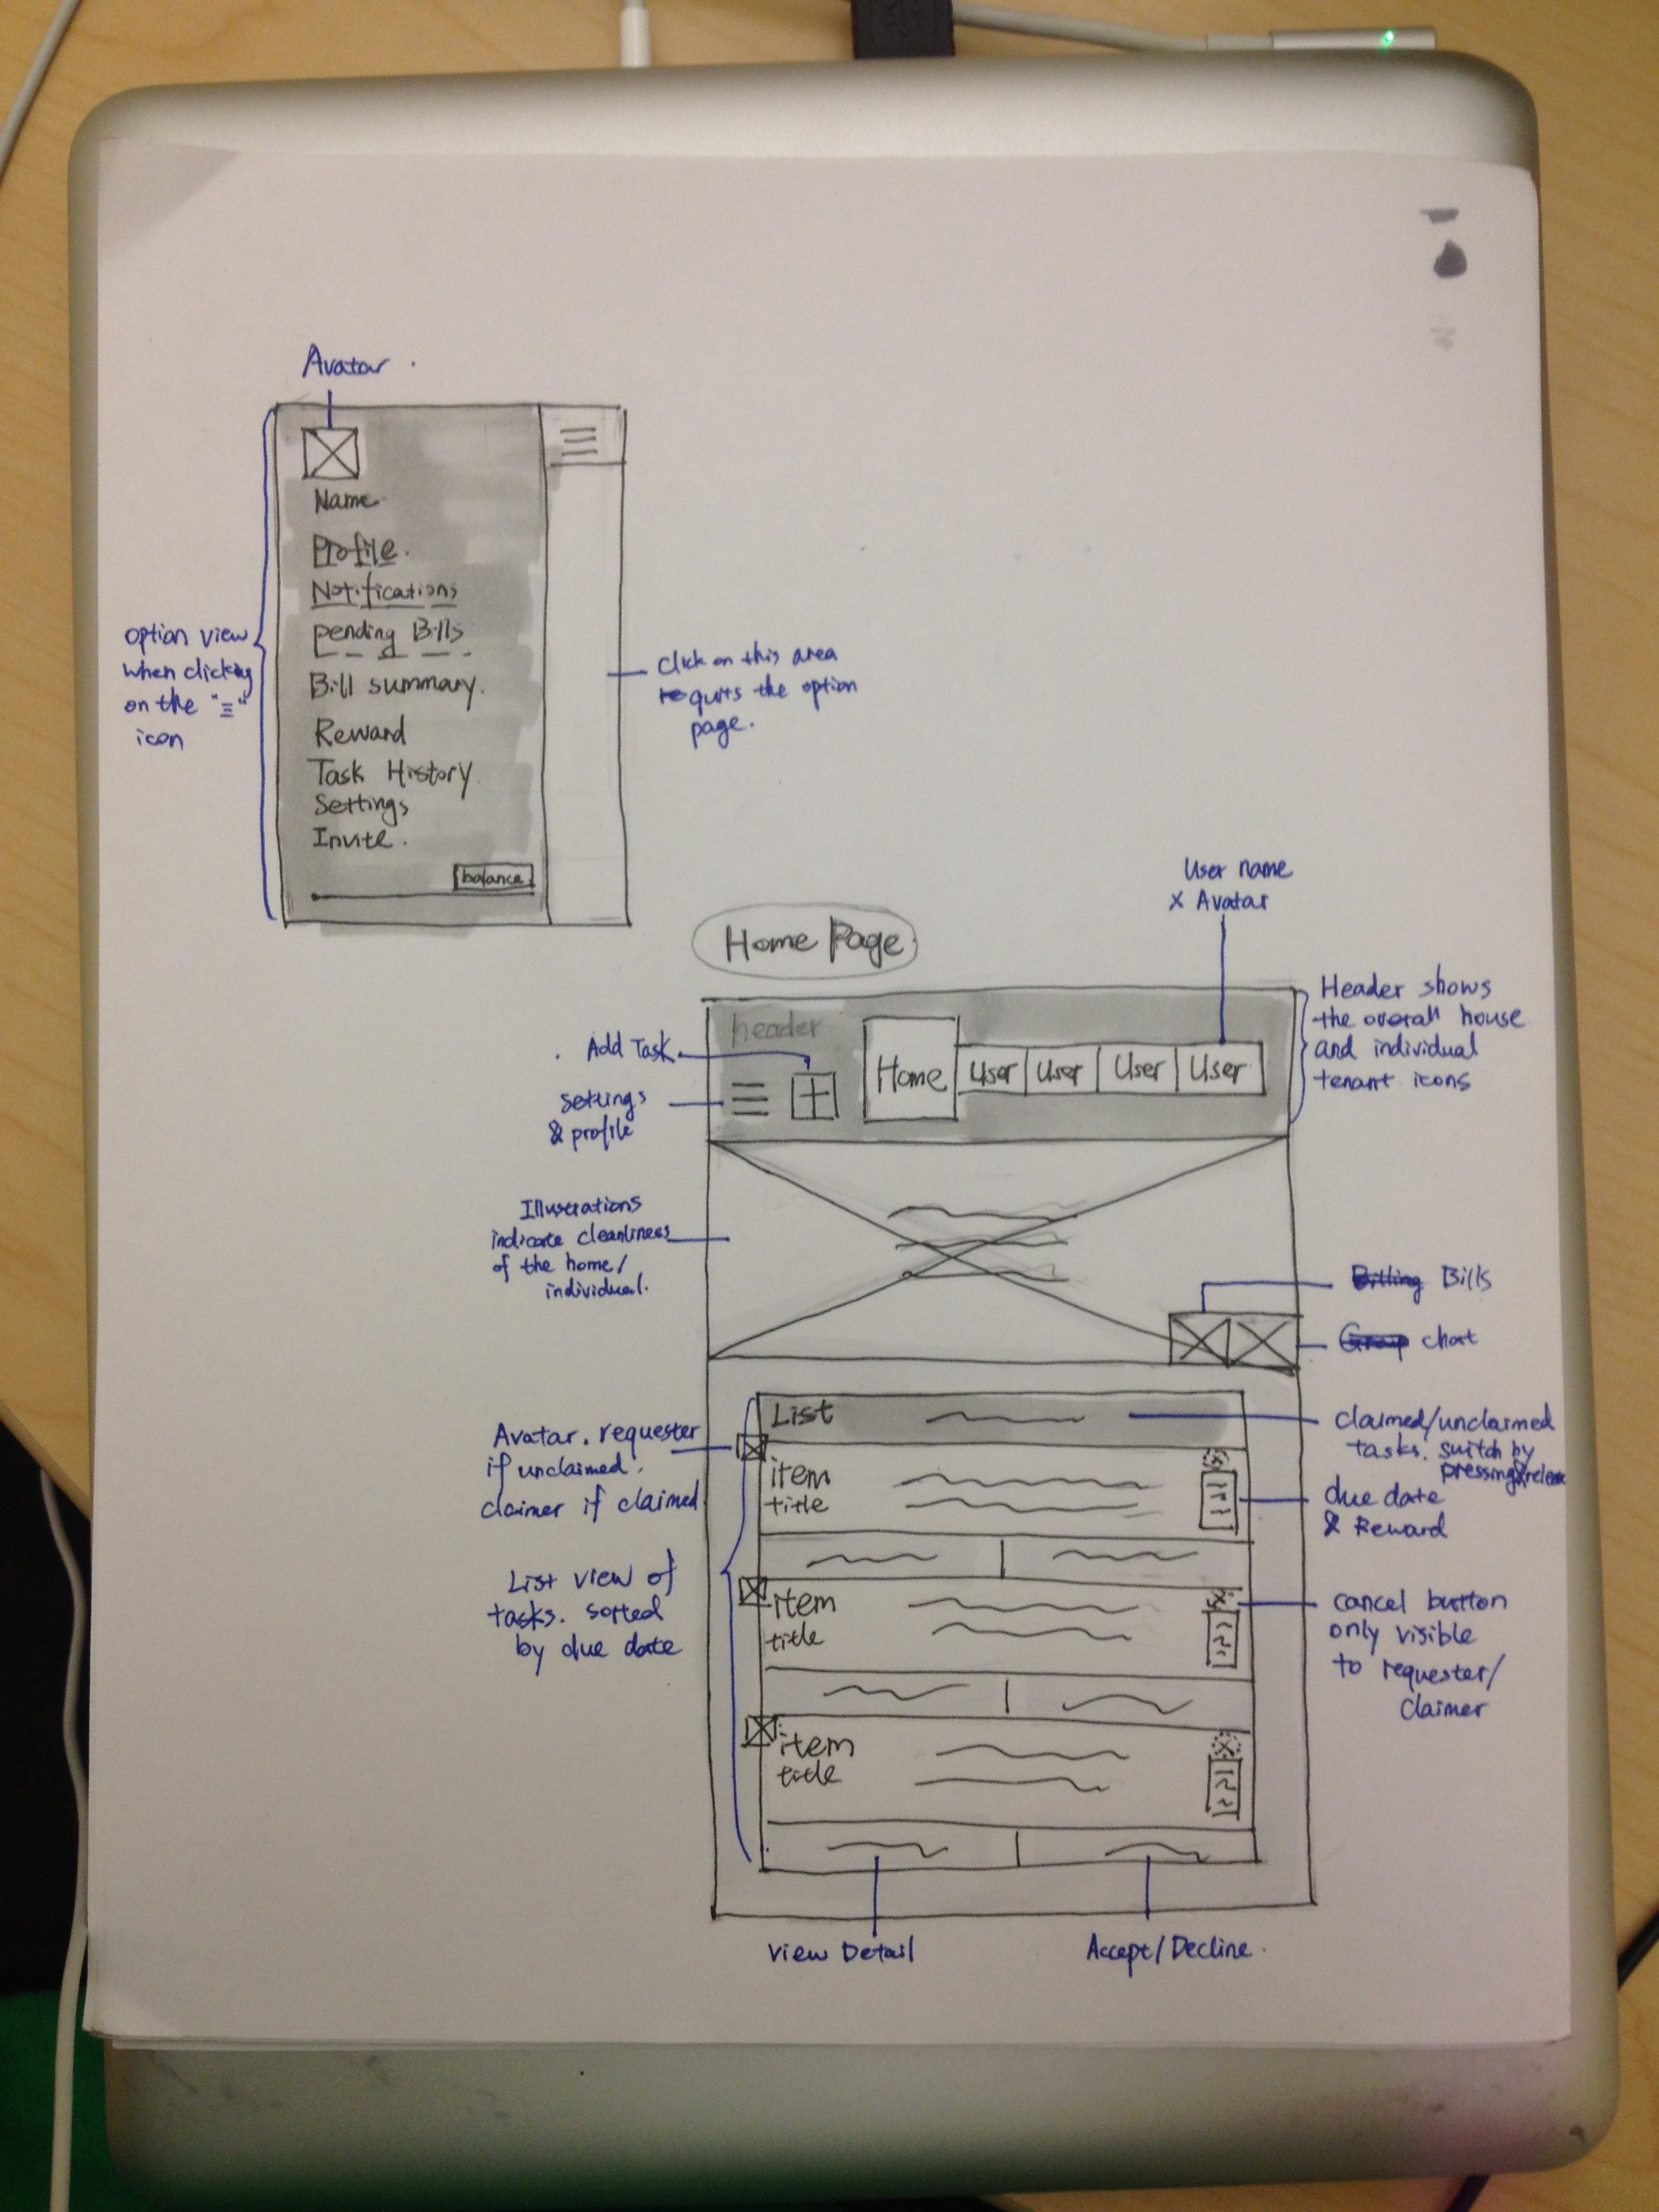 Avatar
Name
Profile.
Notifications
pending Bills
Bill summary.
Reward
Task History
Settings
Invite.
balance
option view
when clicking
on the "≡"
icon
Click on this area
quits the option
page.
Home Page
User name
x Avatar
header
Home
User
User
User
User
Header shows
the overall house
and individual
tenant icons
Add Task
settings
& profile
Illustrations
indicate cleanliness
of the home/
individual.
Billing Bills
Group chat
List
claimed/unclaimed
tasks. switch by
pressing
Avatar. requester
if unclaimed.
claimer if claimed
item
title
due date
& Reward
List view of
tasks. sorted
by due date
item
title
cancel button
only visible
to requester/
claimer
item
title
View Detail
Accept/Decline.